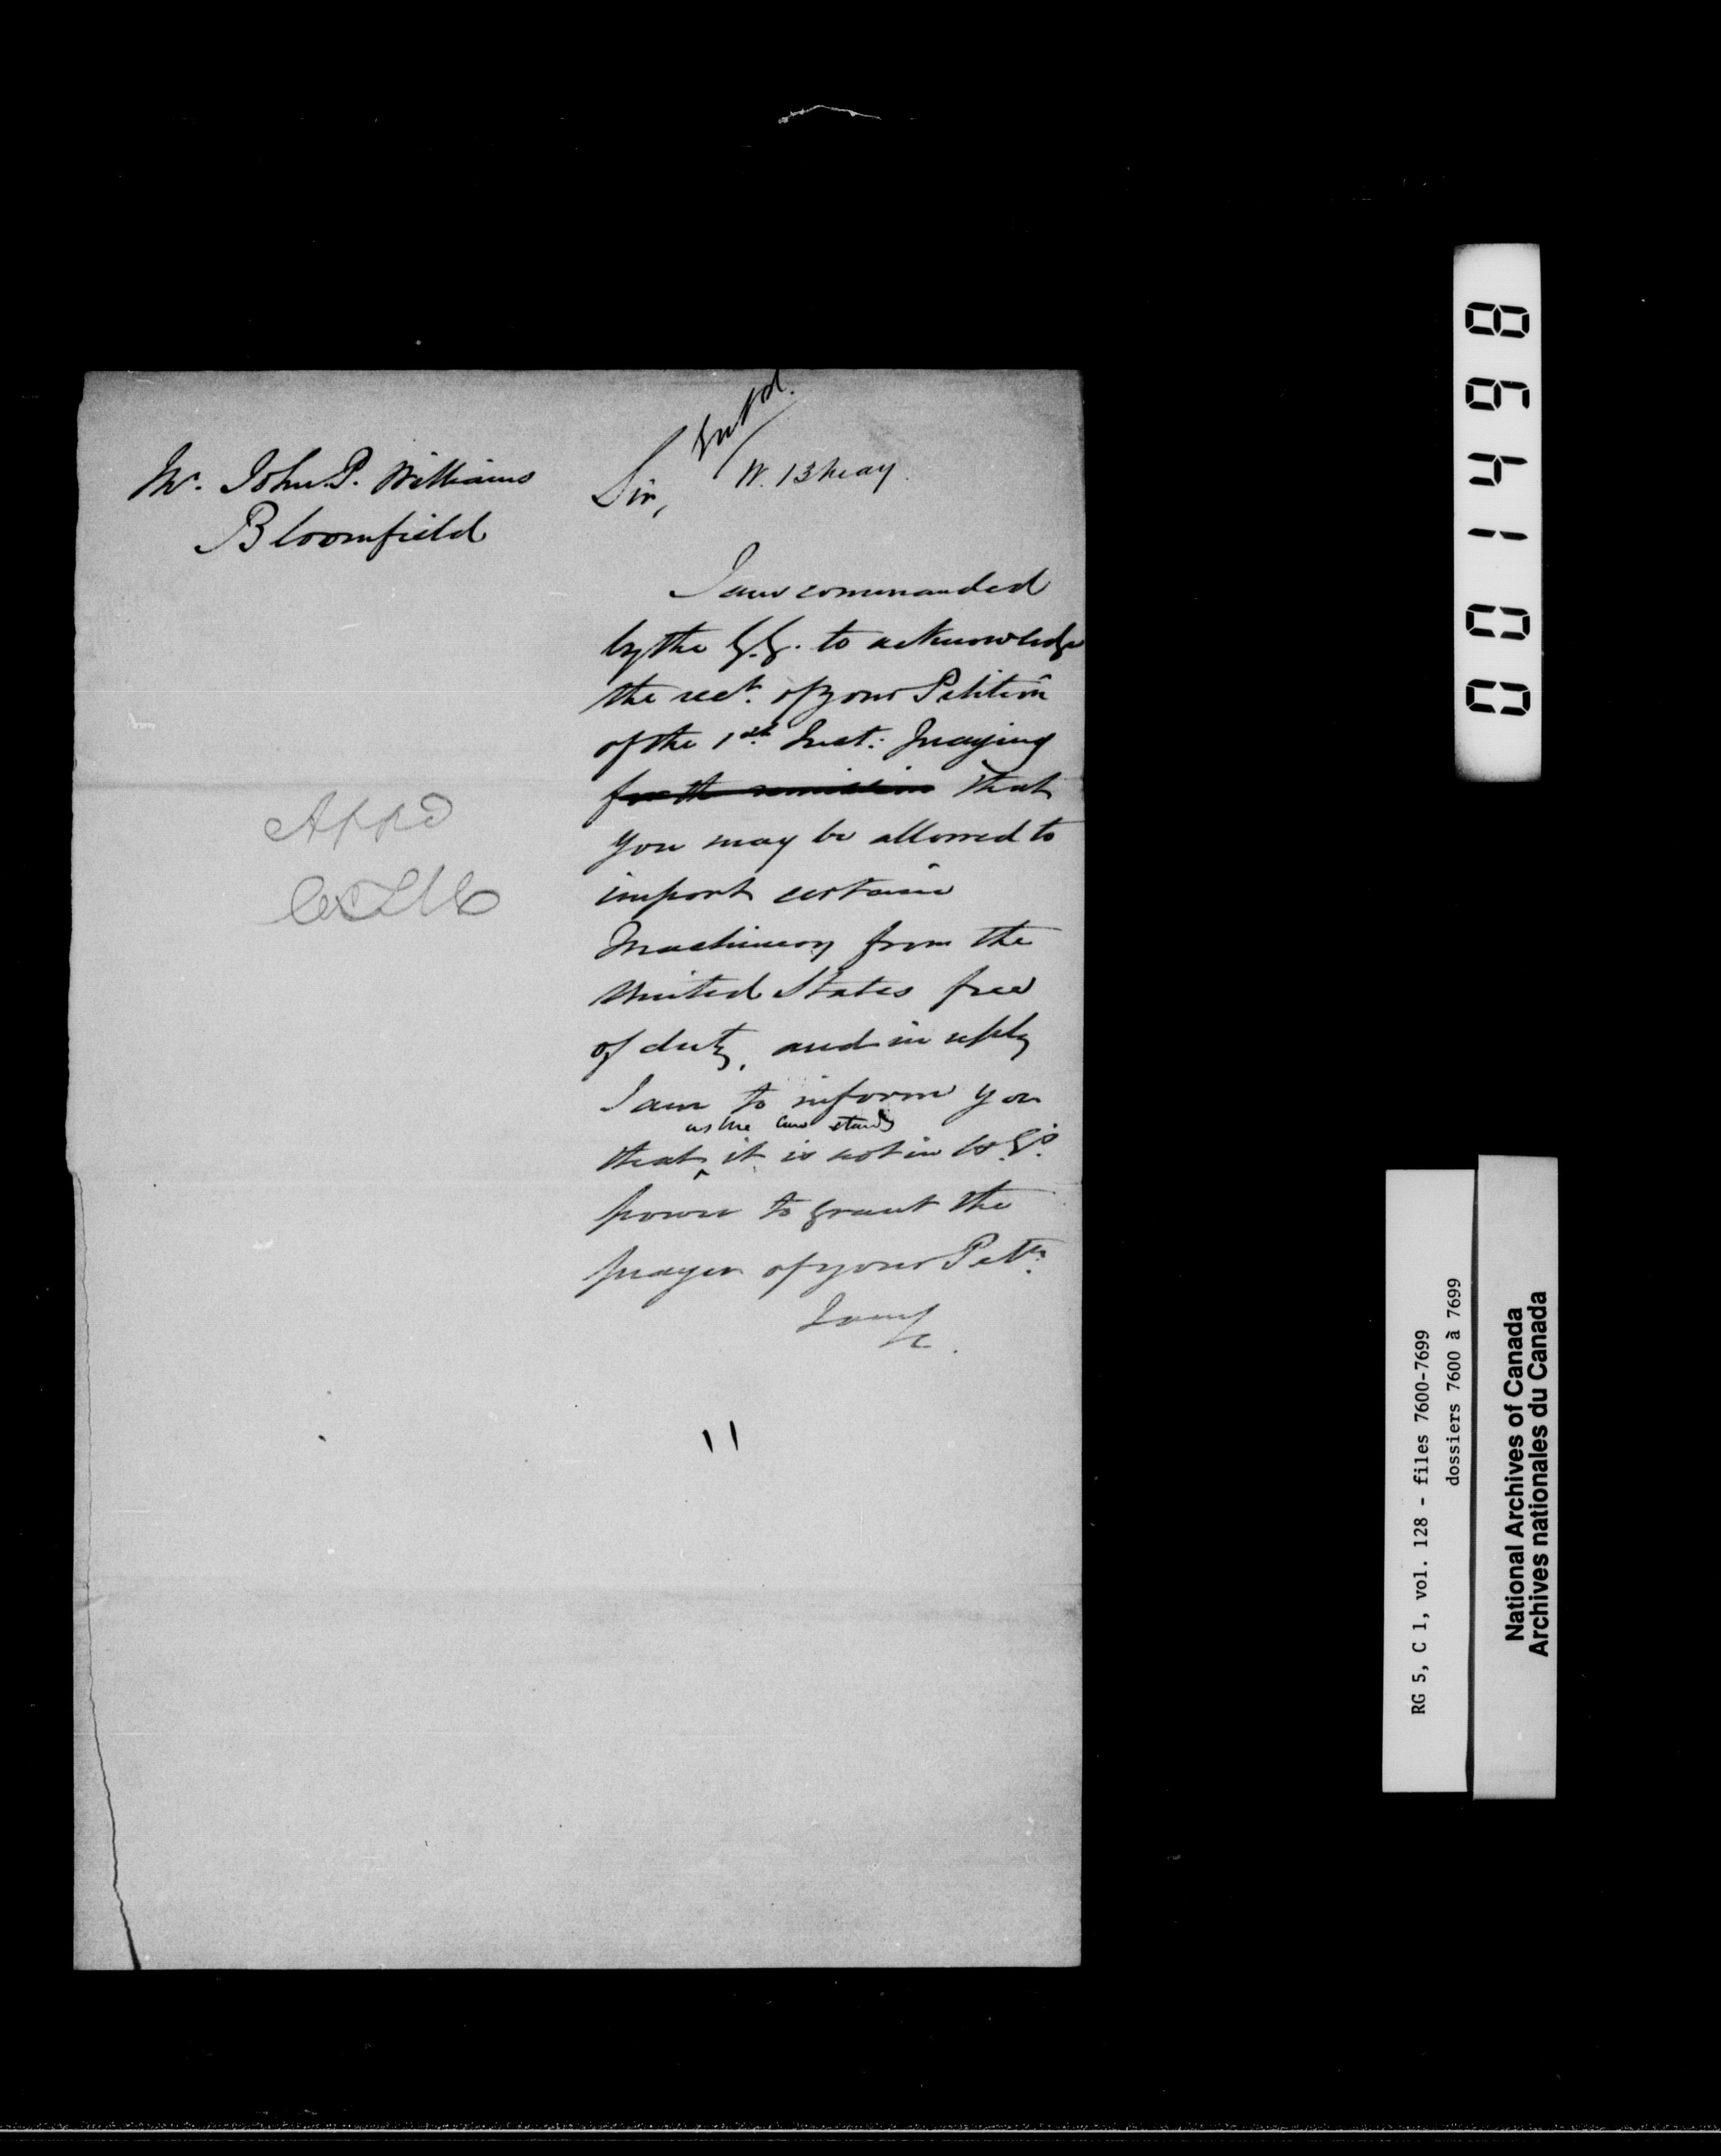 Entd.
W. 13 May.
Mr. John P. Williams
Bloomfield
Sir,
I am commanded
by the G.G. to acknowledge
the rect. of your Petition
of the 1st Inst: praying
for the remission that
you may be allowed to
import certain
Machinery from the
United States free
of duty, and in reply
I am to inform you
as the Law stands
that ^ it is not in H.E's.
power to grant the
prayer of your Petn.
I am
&c.
Appd
001498
RG 5, C 1, vol. 128 - files 7600-7699
dossiers 7600 à 7699
National Archives of Canada
Archives nationales du Canada